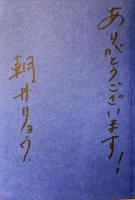 ありがとうございます！
朝井リョウ